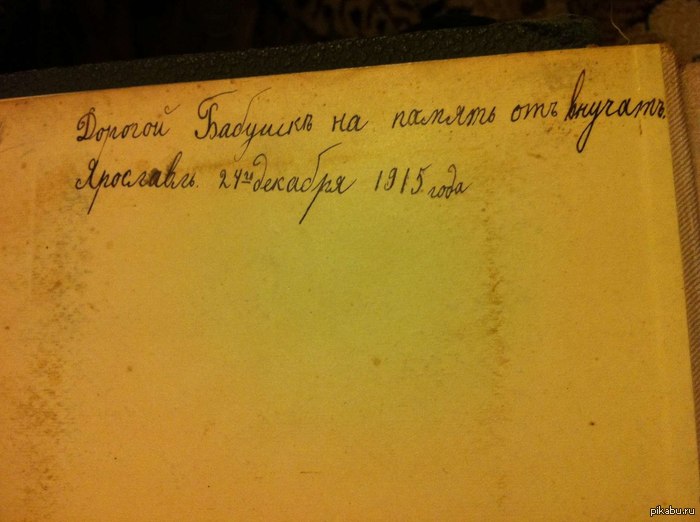 Дорогой Бабушкѣ на память отъ внучатъ.
Ярославль. 24го декабря 1915 года
pikabu.ru